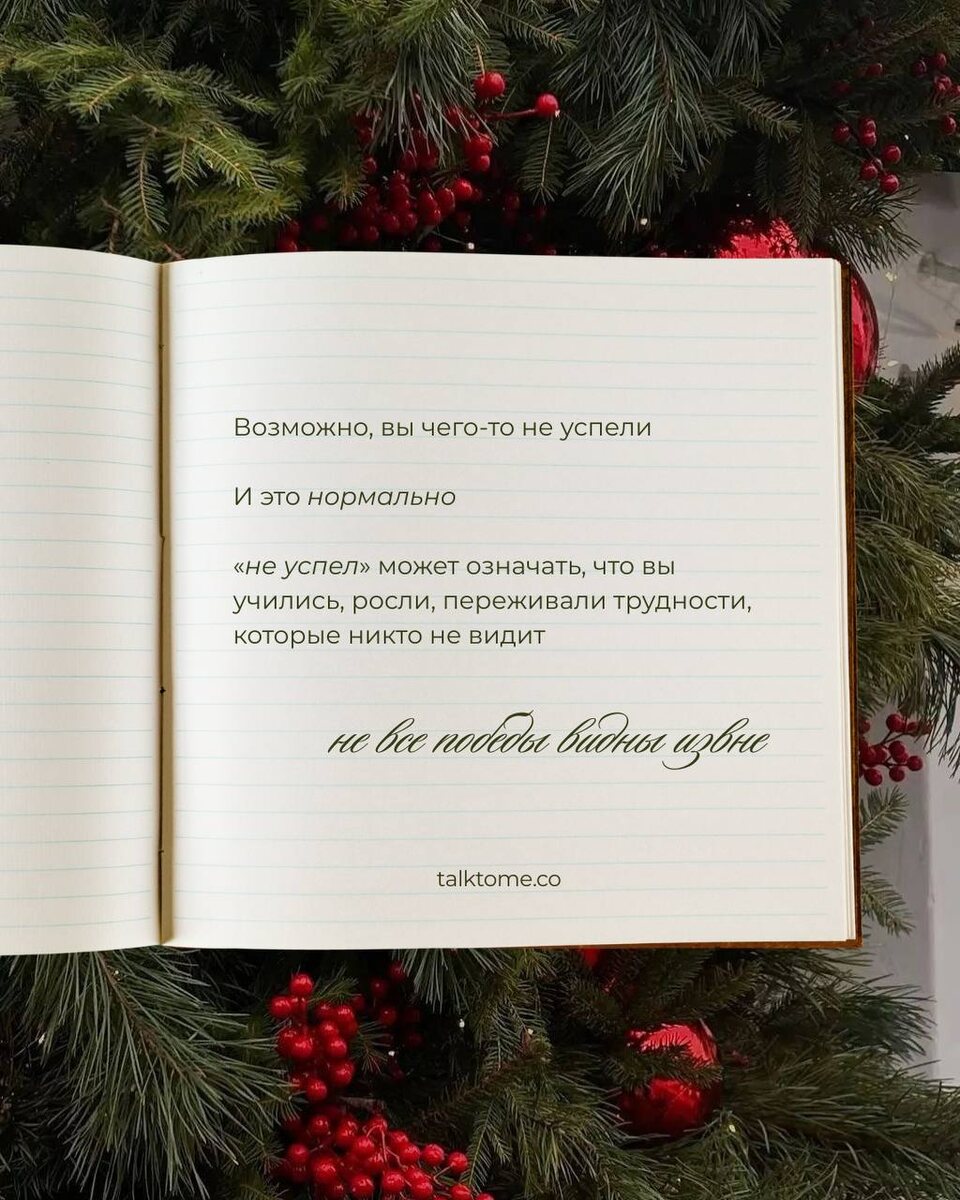 Возможно, вы чего-то не успели
И это нормально
«не успел» может означать, что вы
учились, росли, переживали трудности,
которые никто не видит
не все победы видны извне
talktome.co